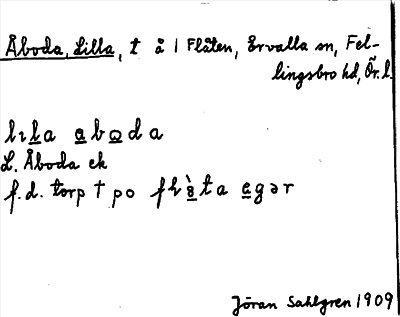 Åboda, Lilla, t å i Flåten, Ervalla sn, Fel-
lingsbro hd, Ör. l.
lıla aboda
L. Åboda ek
f.d. torp † po
Jöran Sahlgren 1909